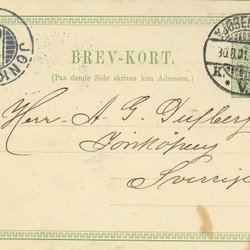 BREV-KORT.
(Paa dende Side skrives kun Adressen.)
Herr A. G. Dufberg
Jönköping
Sverige
JÖNK
30.8.01